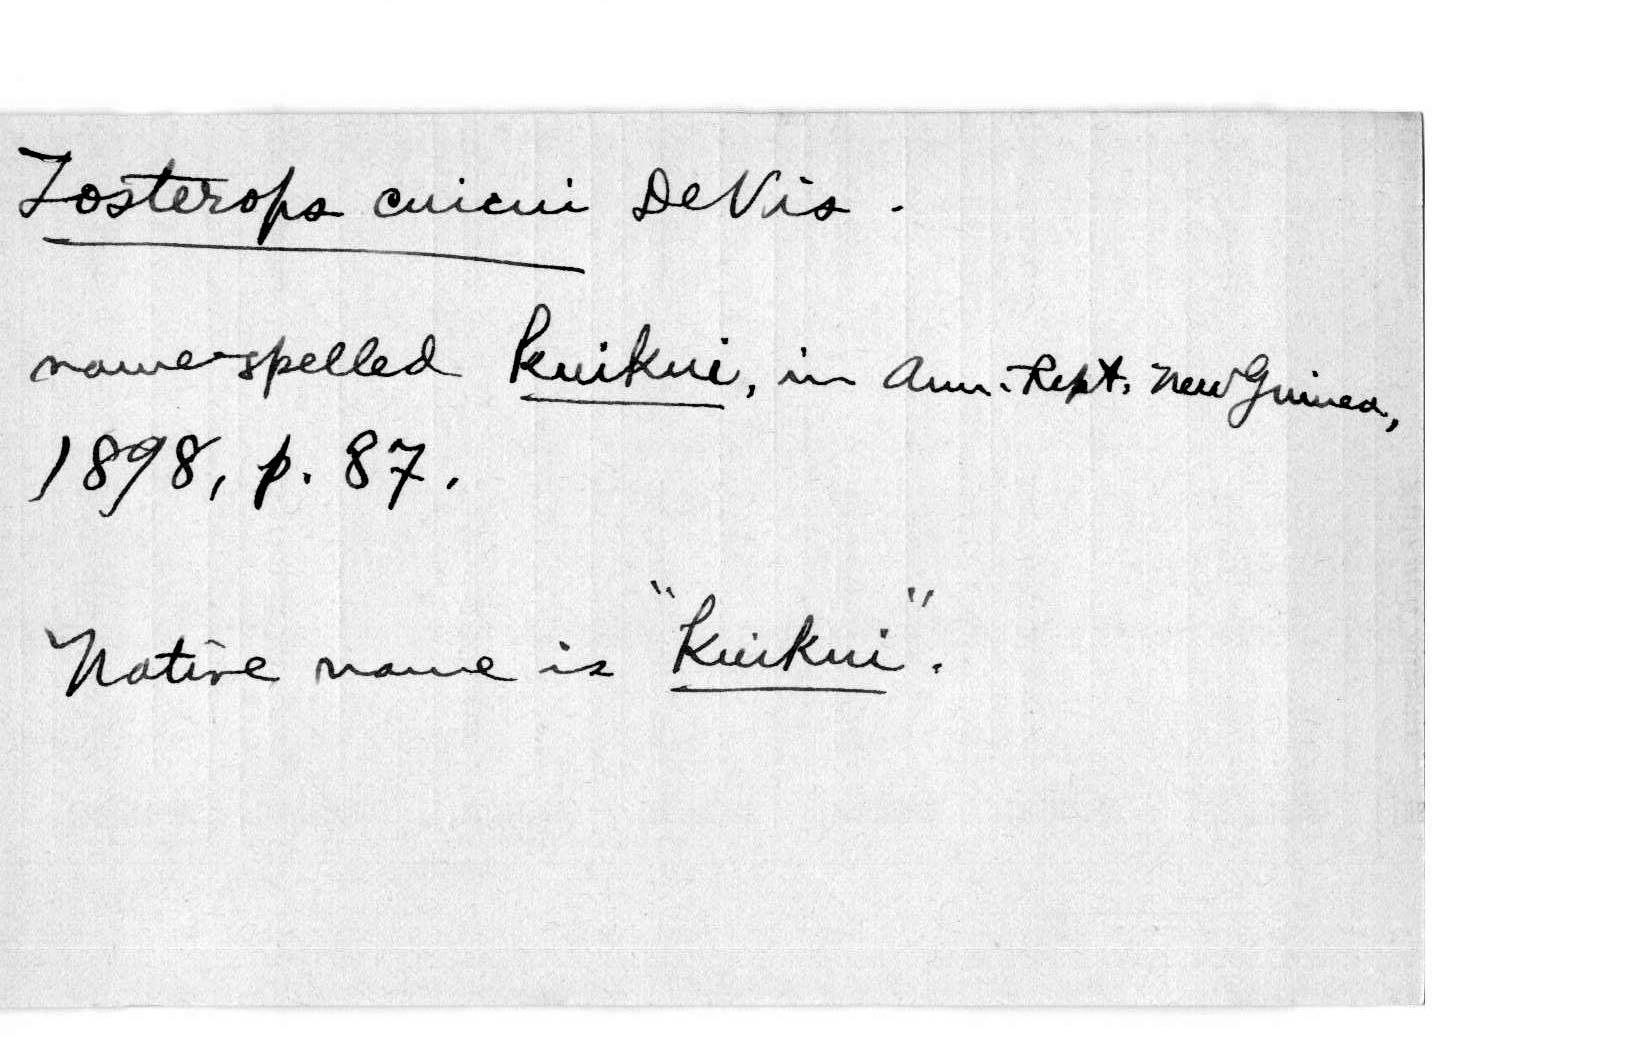 Zosterops cuicui De Vis.
name spelled kuikui, in Ann. Rept. New Guinea,
1898, p. 87.
Native name is "Kuikui".